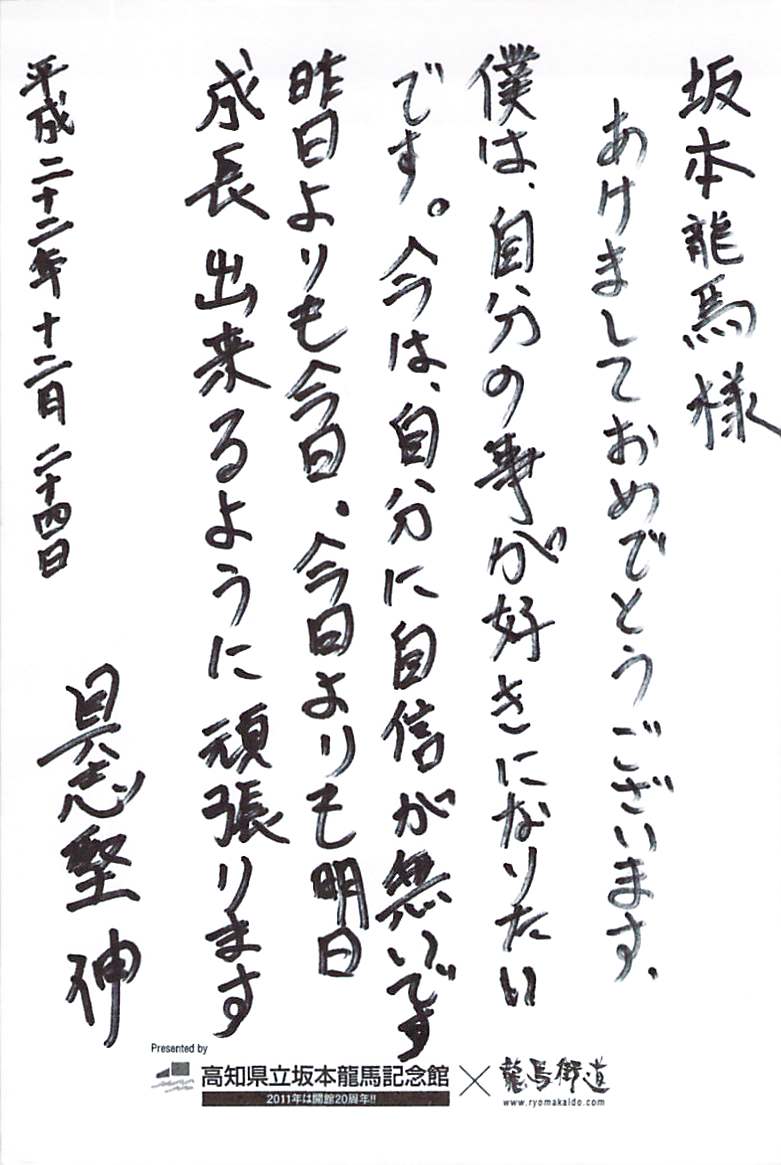 坂本龍馬様
あけましておめでとうございます。
僕は、自分の事が好きになりたい
です。今は、自分に自信が無いです
昨日よりも今日、今日よりも明日
成長出来るように頑張ります
平成二十二年十二月二十四日
Presented by
高知県立坂本龍馬記念館
2011年は開館20周年!!
龍馬街道
www.ryomakaido.com